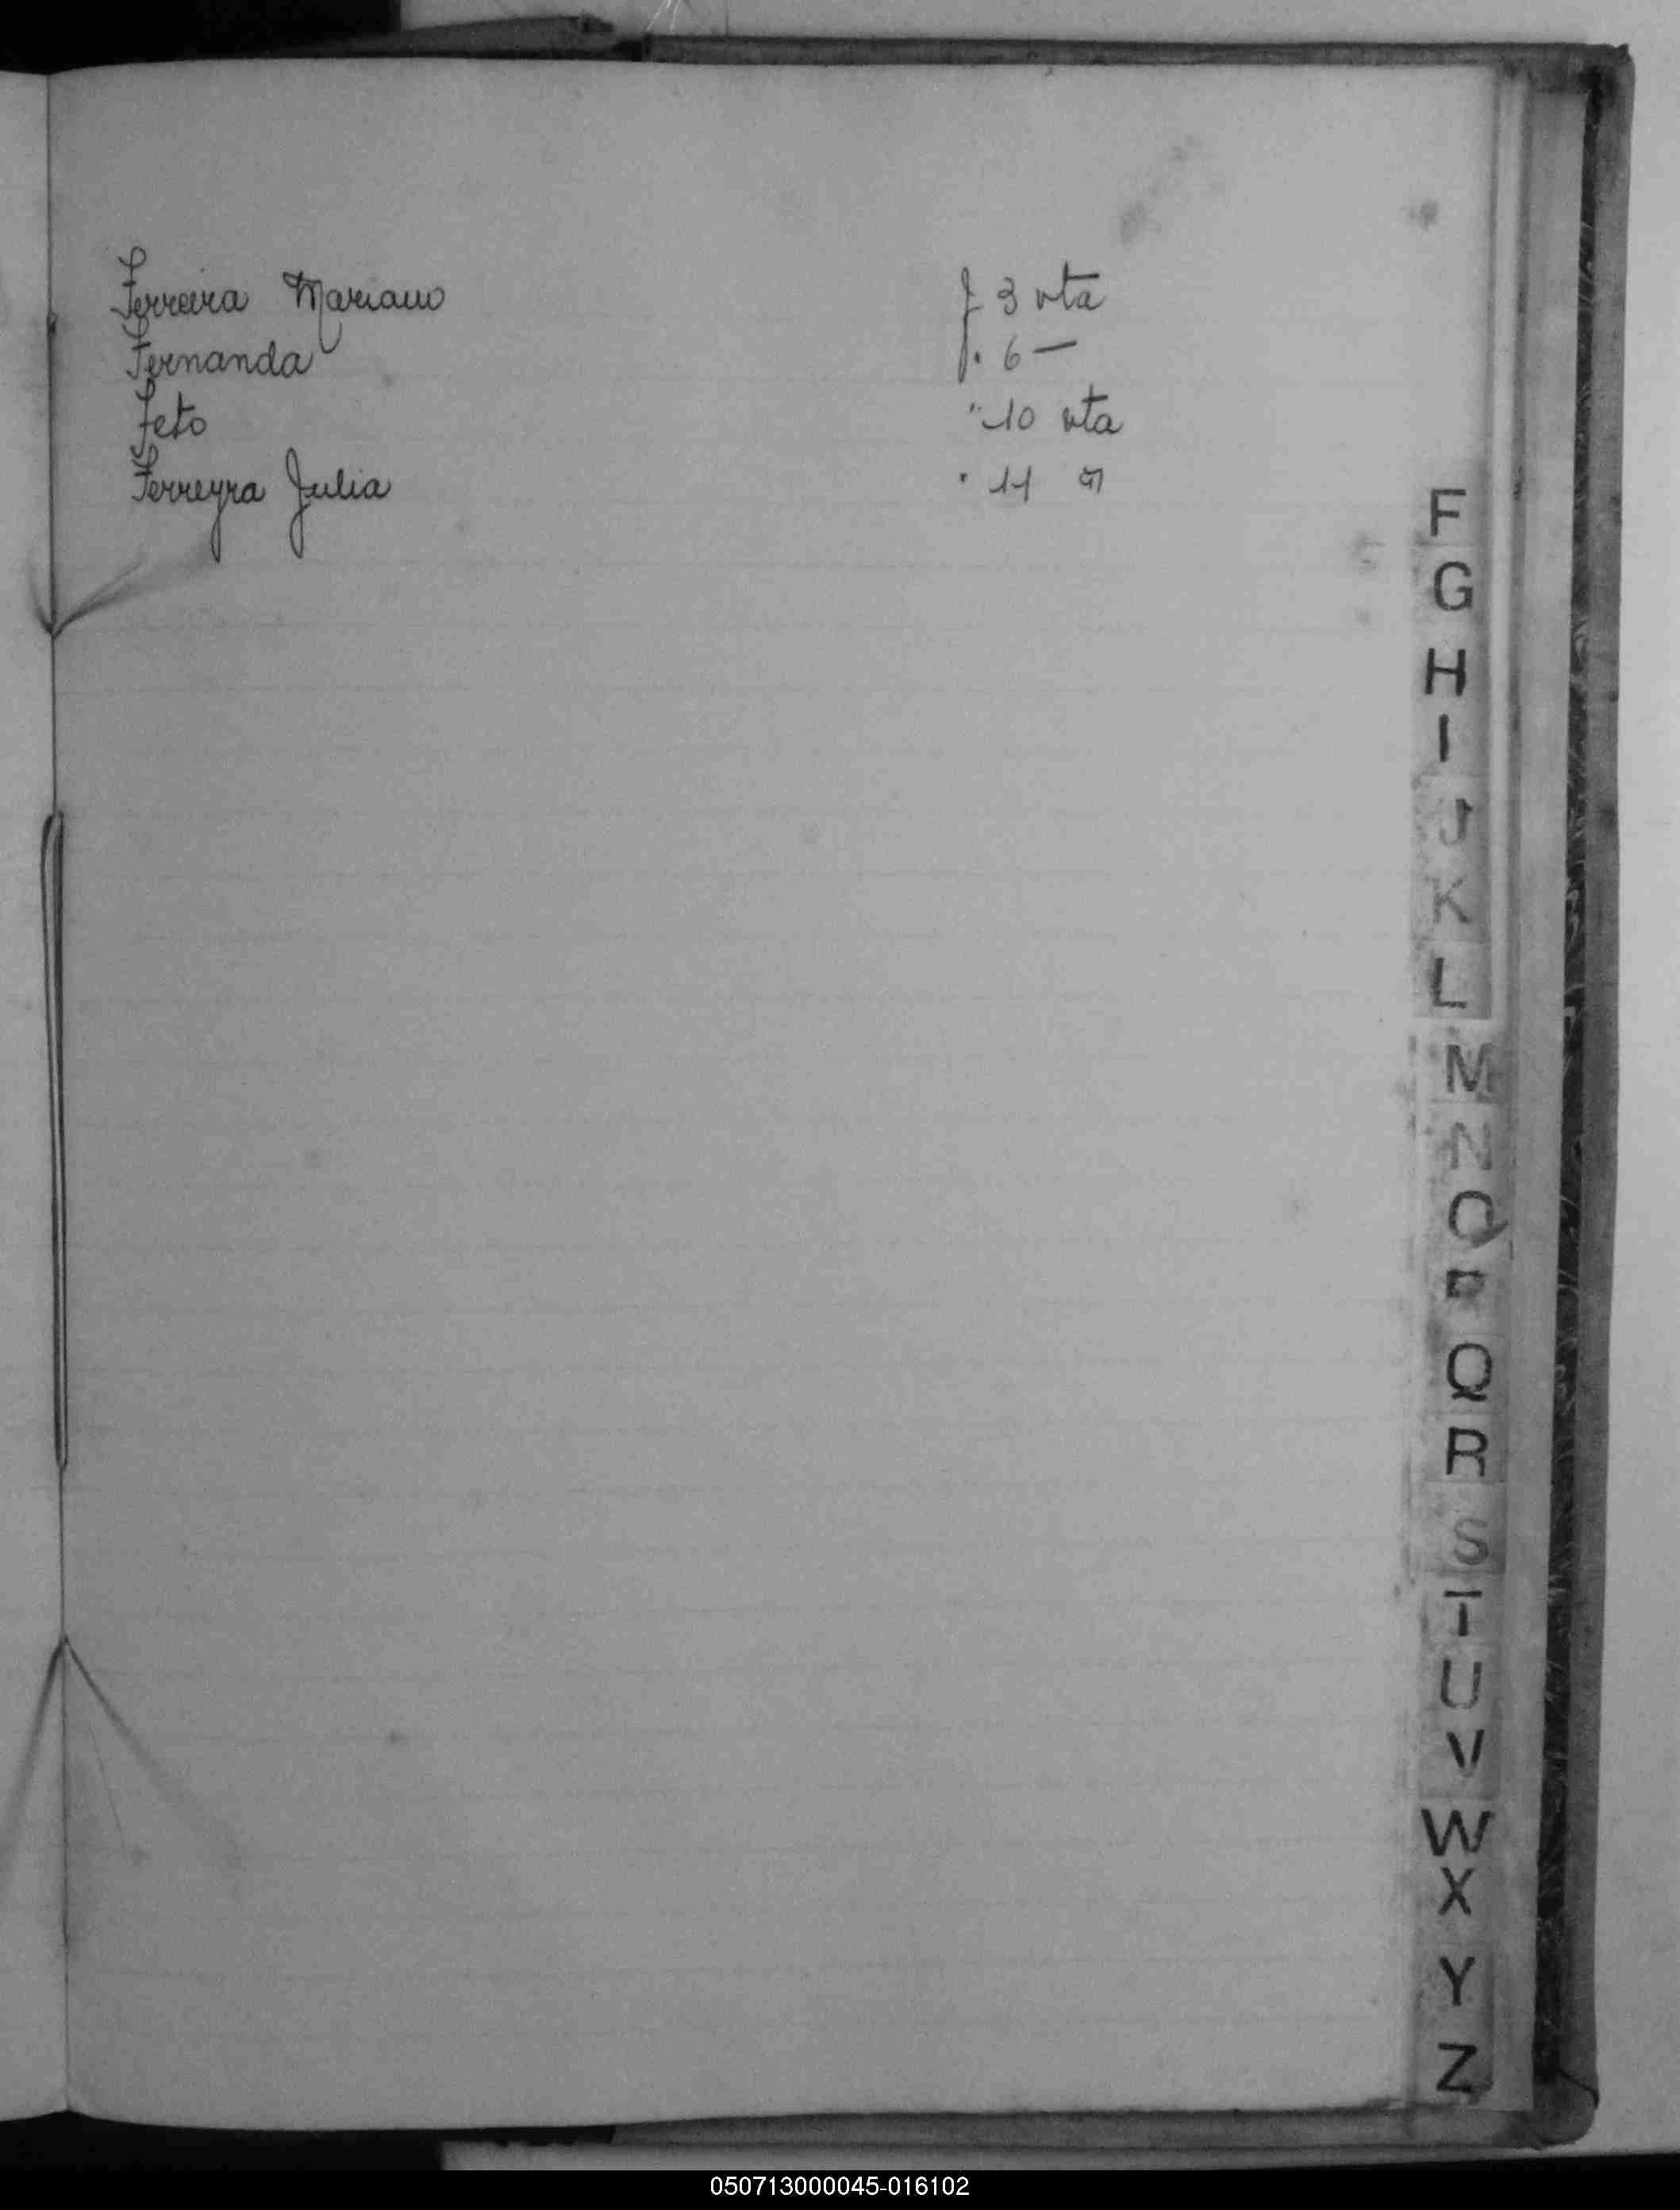 Ferreira Mariano f 3 vta
Fernanda f. 6 —
Feto " 10 vta
Ferreyra Julia " 11
F
G
H
I
J
K
L
M
N
O
P
Q
R
S
T
U
V
W
X
Y
Z
050713000045-016102